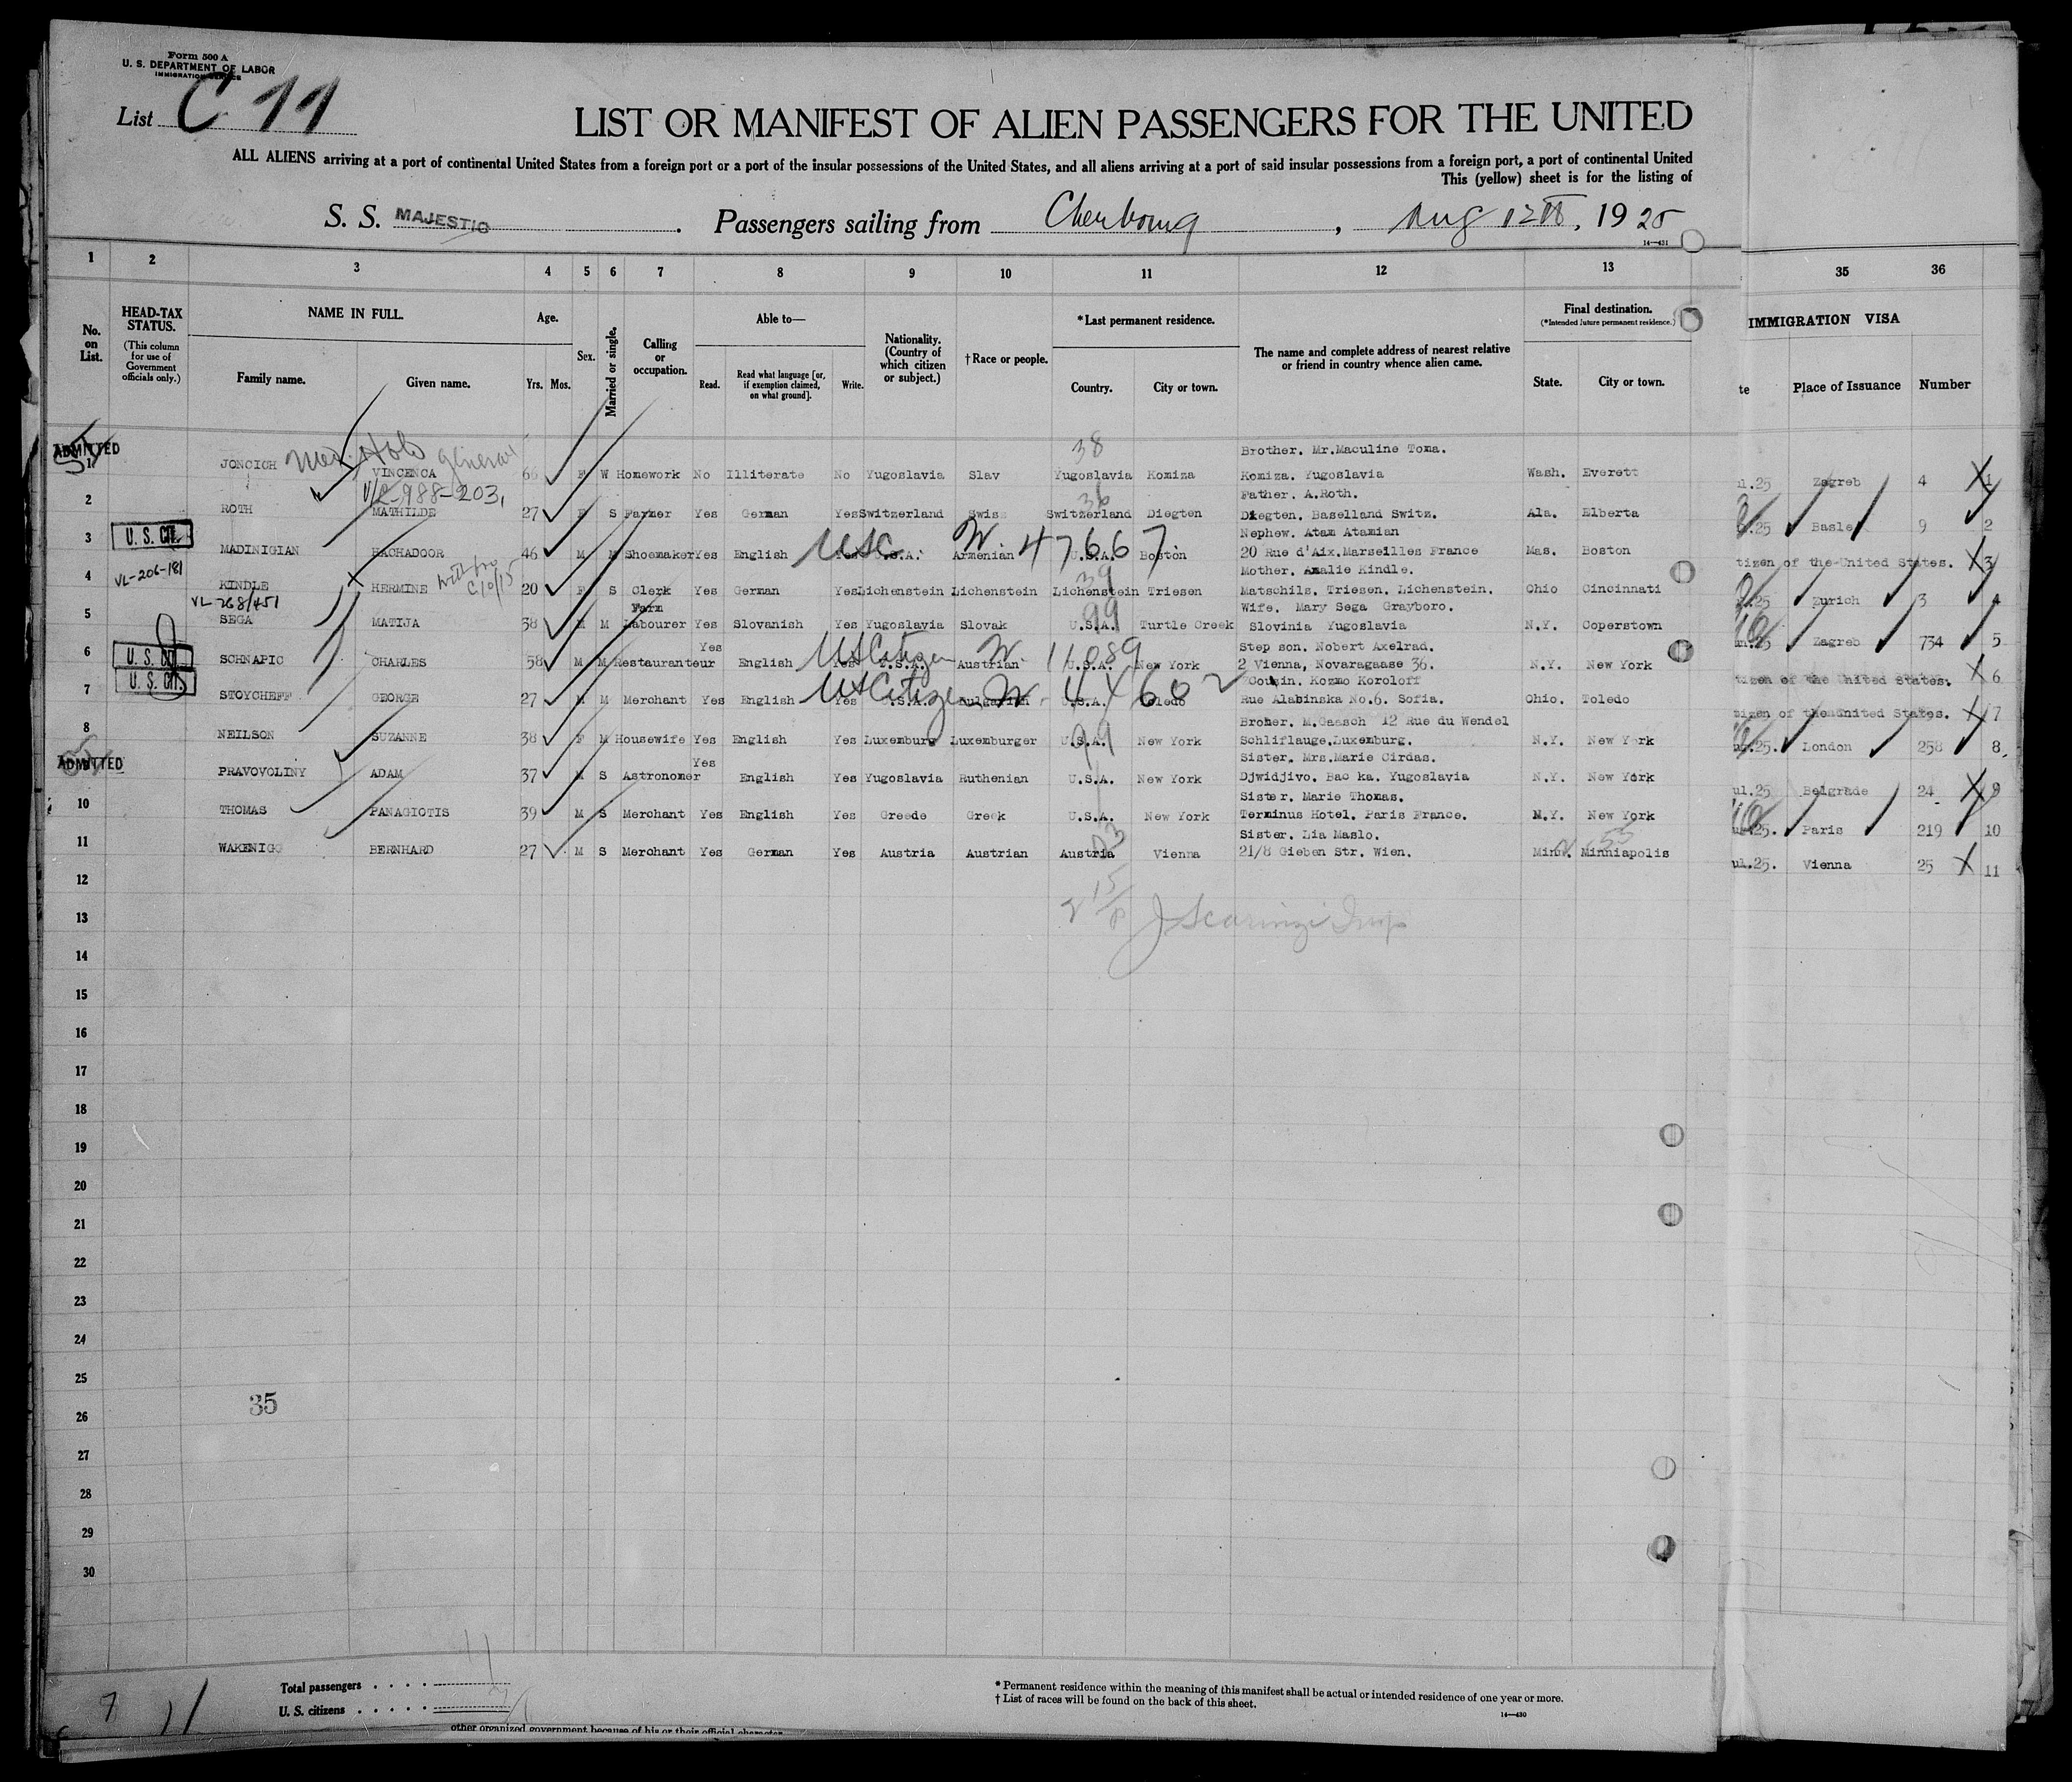 Form 500 A
U. S. DEPARTMENT OF LABOR
IMMIGRATION SERVICE
List C 11
LIST OR MANIFEST OF ALIEN PASSENGERS FOR THE UNITED
ALL ALIENS arriving at a port of continental United States from a foreign port or a port of the insular possessions of the United States, and all aliens arriving at a port of said insular possessions from a foreign port, a port of continental United
This (yellow) sheet is for the listing of
S. S. MAJESTIC. Passengers sailing from Cherbourg, Aug 12th, 1925
14—431
1 2 3 4 5 6 7 8 9 10 11 12 13 35 36
No. on List.
HEAD-TAX STATUS. (This column for use of Government officials only.)
NAME IN FULL. Family name. Given name.
Age. Yrs. Mos.
Sex.
Married or single.
Calling or occupation.
Able to— Read. Read what language [or, if exemption claimed, on what ground]. Write.
Nationality. (Country of which citizen or subject.)
†Race or people.
*Last permanent residence. Country. City or town.
The name and complete address of nearest relative or friend in country whence alien came.
Final destination. (*Intended future permanent residence.) State. City or town.
IMMIGRATION VISA
te Place of Issuance Number
ADMITTED Med. Hold General 38 Brother. Mr.Maculine Toma.
1 JONCICH VINCENCA 66 F W Homework No Illiterate No Yugoslavia Slav Yugoslavia Komiza Komiza. Yugoslavia Wash. Everett ul.25 Zagreb 4 1
VL-988-203, 36 Father. A.Roth.
2 ROTH MATHILDE 27 F S Farmer Yes German Yes Switzerland Swiss Switzerland Diegten Diegten. Baselland Switz. Ala. Elberta .25 Basle 9 2
U. S. CIT. USC W. 47667 Nephew. Atam Atamian
3 MADINIGIAN HACHADOOR 46 M M Shoemaker Yes English Yes U.S.A. Armenian U.S.A. Boston 20 Rue d'Aix.Marseilles France Mas. Boston tizen of the United States. 3
VL-206-181 C10/15 39 Mother. Amalie Kindle.
4 KINDLE HERMINE 20 F S Clerk Yes German Yes Lichenstein Lichenstein Lichenstein Triesen Matschils. Triesen. Lichenstein. Ohio Cincinnati .25 Zurich 3 4
VL 268/451 Farm 99 Wife. Mary Sega Grayboro.
5 SEGA MATIJA 38 M M Labourer Yes Slovanish Yes Yugoslavia Slovak U.S.A. Turtle Creek Slovinia Yugoslavia N.Y. Coperstown un.25 Zagreb 734 5
U. S. CIT. US Citizen W. 11089 Step son. Nobert Axelrad.
6 SCHNAPIC CHARLES 58 M M Restauranteur Yes English Yes U.S.A. Austrian U.S.A. New York 2 Vienna, Novaragaase 36. N.Y. New York tizen of the United States. 6
U. S. CIT. US Citizen W. 44602 Cousin. Kozmo Koroloff
7 STOYCHEFF GEORGE 27 M M Merchant Yes English Yes U.S.A. Bulgarian U.S.A. Toledo Rue Alabinska No.6. Sofia. Ohio. Toledo tizen of the United States. 7
99 Broher. M.Gaasch 12 Rue du Wendel
8 NEILSON SUZANNE 38 F M Housewife Yes English Yes Luxemburg Luxemburger U.S.A. New York Schliflauge.Luxemburg. N.Y. New York .25. London 258 8
ADMITTED Sister. Mrs.Marie Cirdas.
PRAVOVOLINY ADAM 37 M S Astronomer Yes English Yes Yugoslavia Ruthenian U.S.A. New York Djwidjivo. Bac ka. Yugoslavia N.Y. New York ul.25 Belgrade 24 9
Sister. Marie Thomas.
10 THOMAS PANAGIOTIS 39 M S Merchant Yes English Yes Greede Greek U.S.A. New York Terminus Hotel. Paris France. N.Y. New York ul.25. Paris 219 10
Sister. Lia Maslo.
11 WAKENIGG BERNHARD 27 M S Merchant Yes German Yes Austria Austrian Austria Vienna 21/8 Gieben Str. Wien. Minn. Minniapolis ul.25. Vienna 25 11
12
13 J Scarinzi Insp
14
15
16
17
18
19
20
21
22
23
24
25
26 35
27
28
29
30
Total passengers 11
U. S. citizens
7 11
* Permanent residence within the meaning of this manifest shall be actual or intended residence of one year or more.
† List of races will be found on the back of this sheet.
14—430
other organized government because of his or their official character